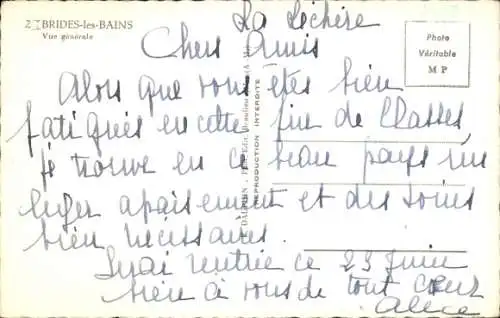 La Léchère
2 BRIDES-les-BAINS
Vue générale
Photo
Véritable
M P
Chers Amis
Alors que vous êtes bien
fatigués en cette fin de Classes,
je trouve en ce beau pays un
léger apaisement et des soins
bien nécessaires.
rentrée ce 29 Juin
bien à vous de tout cœur
Alice
REPRODUCTION INTERDITE